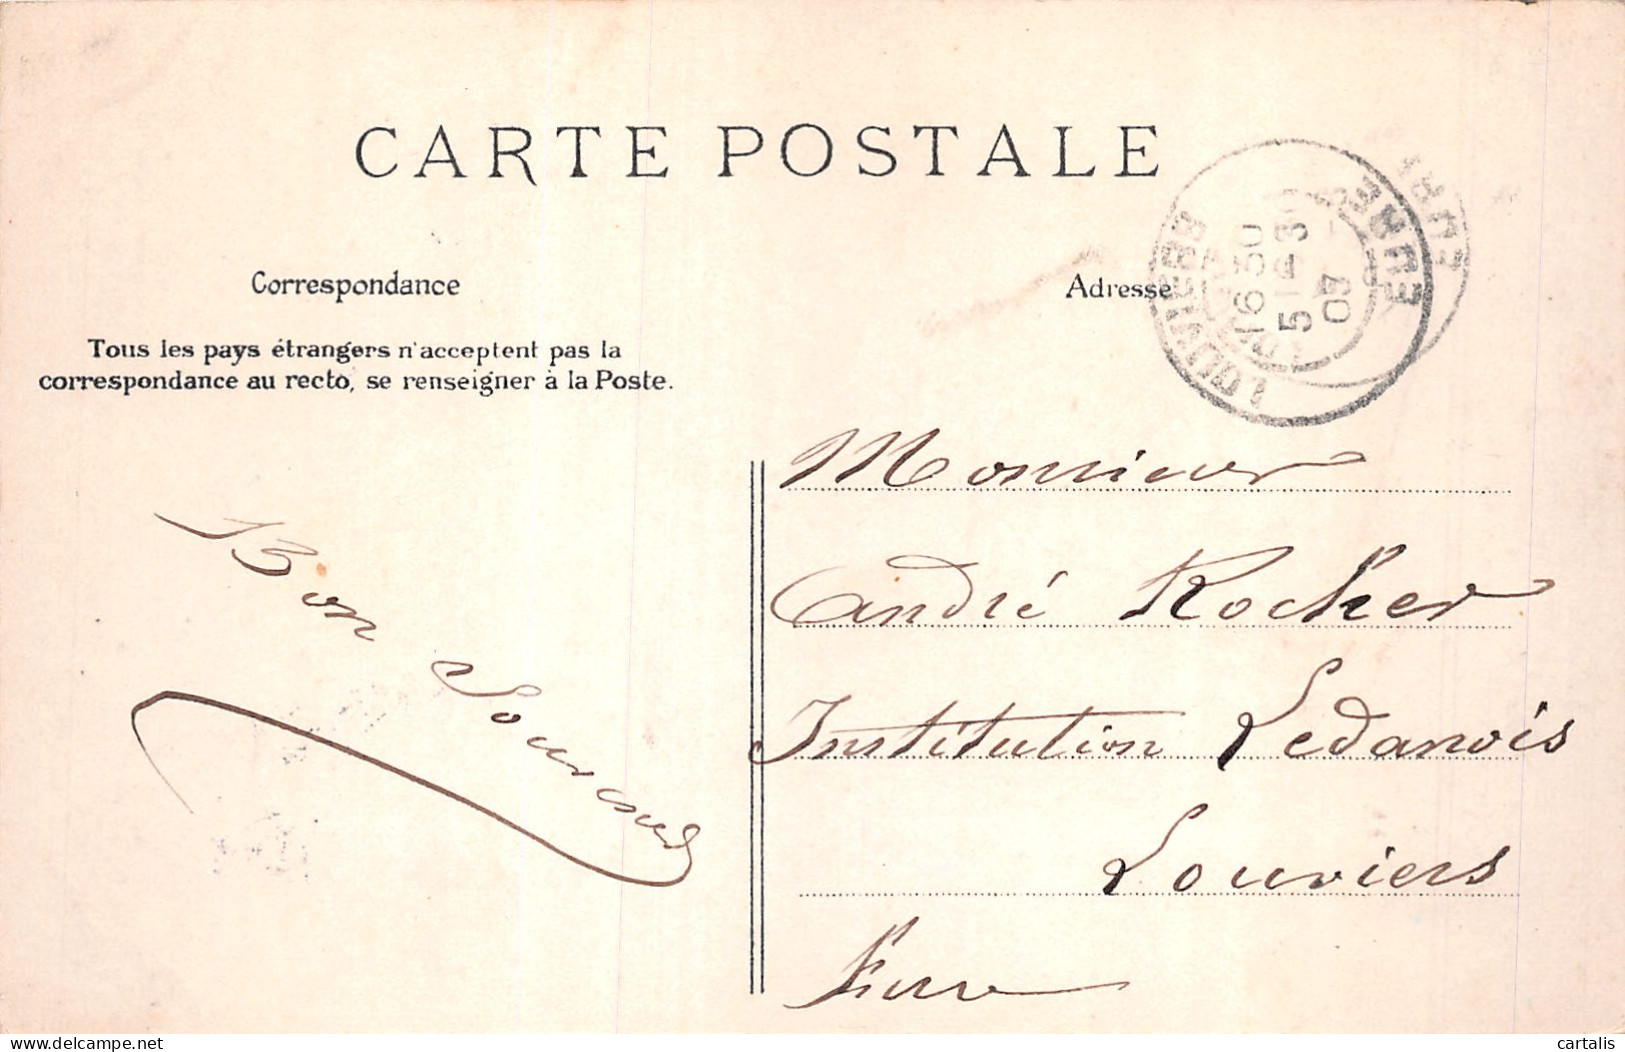 CARTE POSTALE
Correspondance
Adresse
Tous les pays étrangers n'acceptent pas la
correspondance au recto, se renseigner à la Poste.
LOUVIERS EURE
16 30
5
07
Bon Souvenir
Monsieur
André Rocher
Institution Ledanois
Louviers
Eure
www.delcampe.net
cartalis